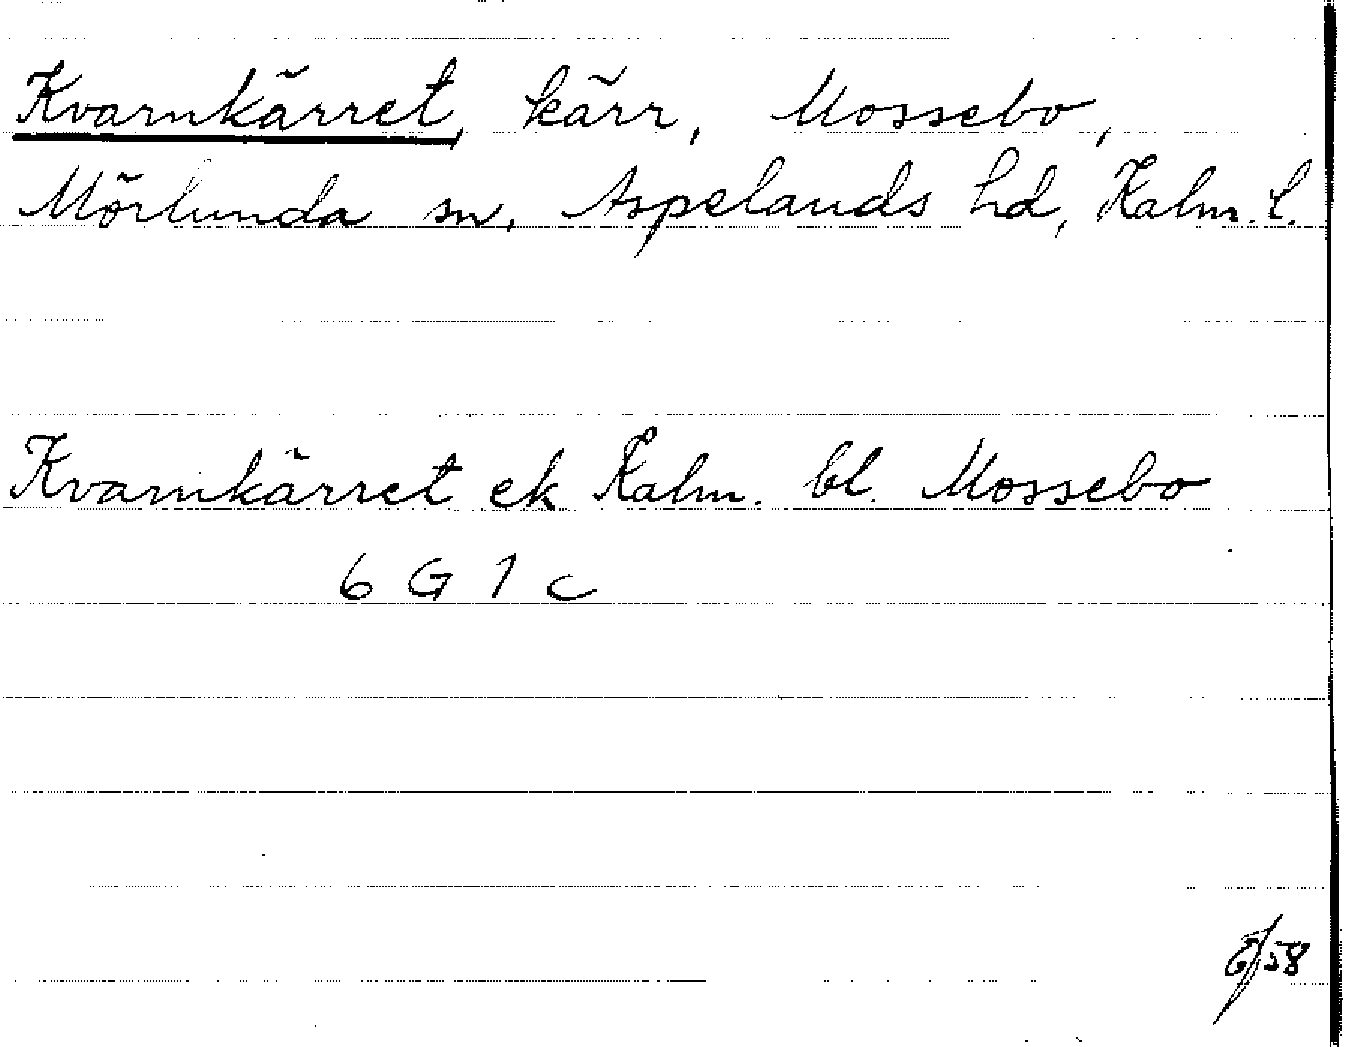 Kvarnkärret, kärr, Mossebo,
Mörlunda sn, Aspelands hd, Kalm. l.
Kvarnkärret ek Kalm. bl. Mossebo
6 G 1 c
/58